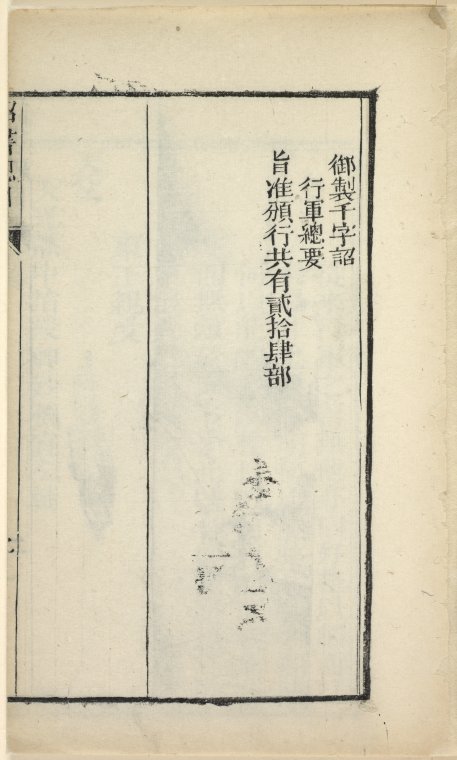 御製千字詔
行軍總要
旨准頒行共有貳拾肆部